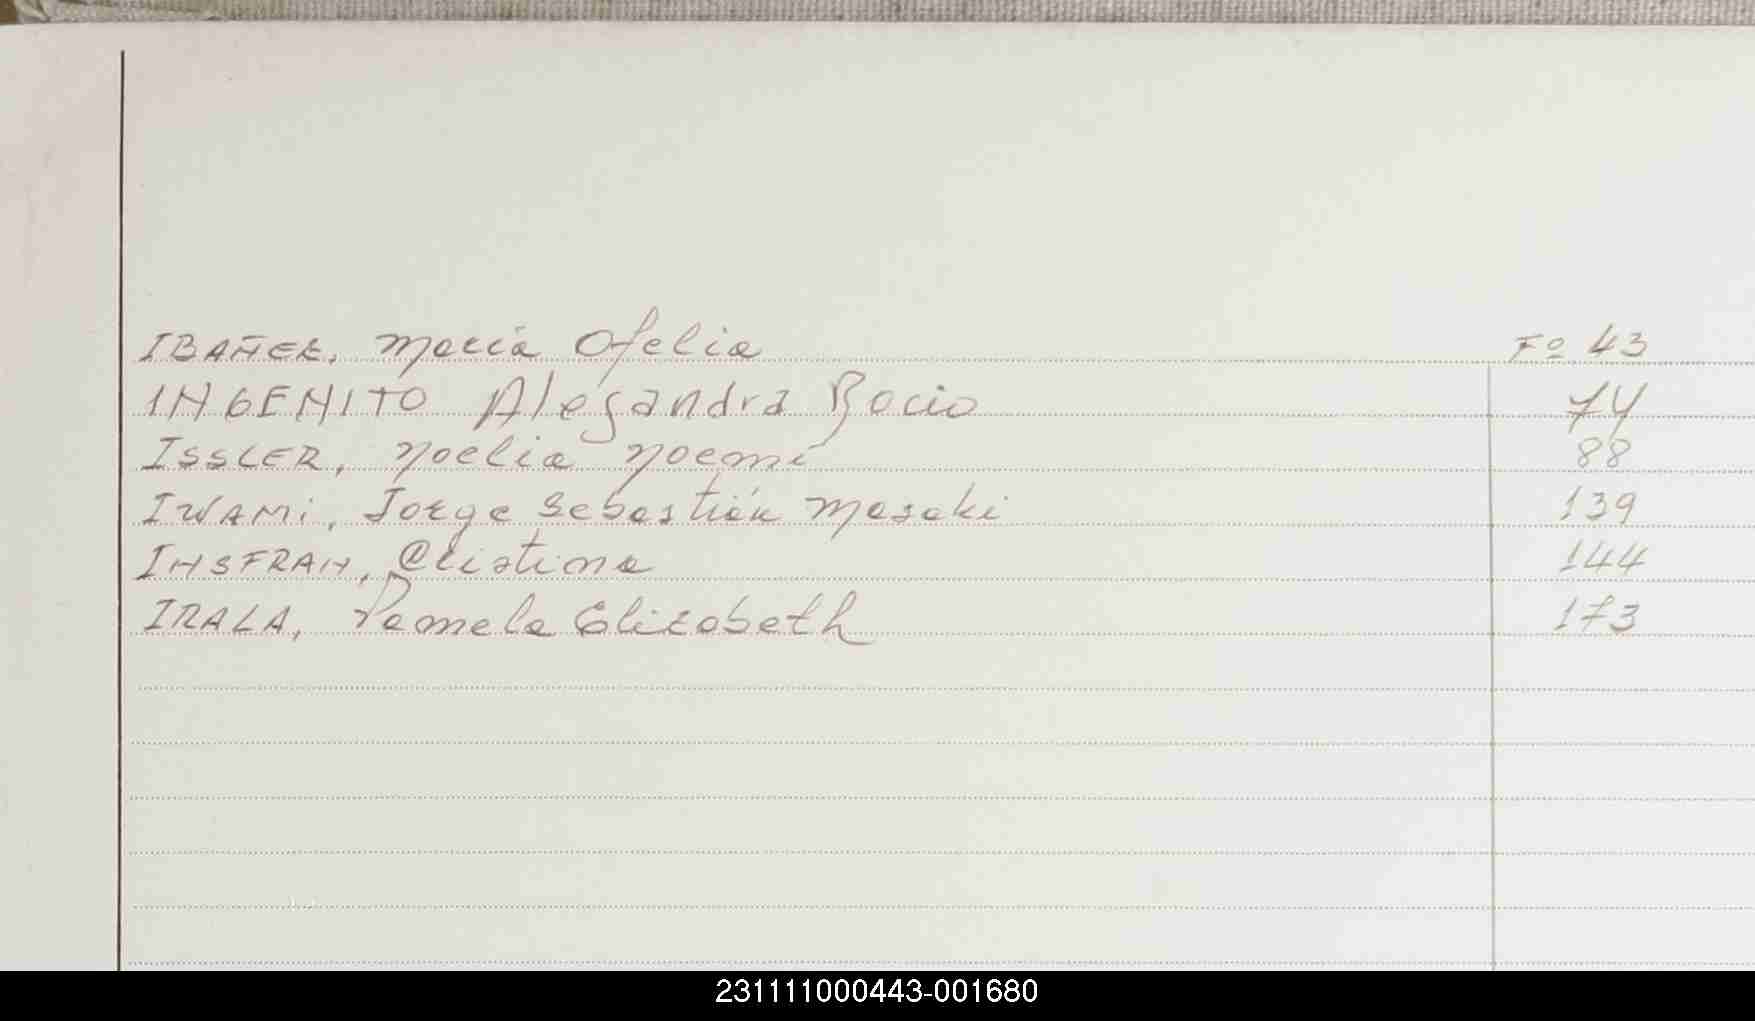 IBAÑEZ, María Ofelia Fº 43
INGENITO Alejandra Rocio 74
ISSLER, Noelia Noemí 88
IWAMI, Jorge Sebastián Masaki 139
INSFRAN, Cristina 144
IRALA, Pamela Elizabeth 173
231111000443-001680